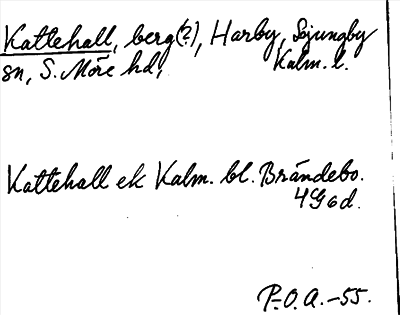 Kattehall, berg(?), Harby, Ljungby
sn, S. Möre hd, Kalm. l.
Kattehall ek Kalm. bl. Brändebo.
4G6d.
P.O.A.-55.